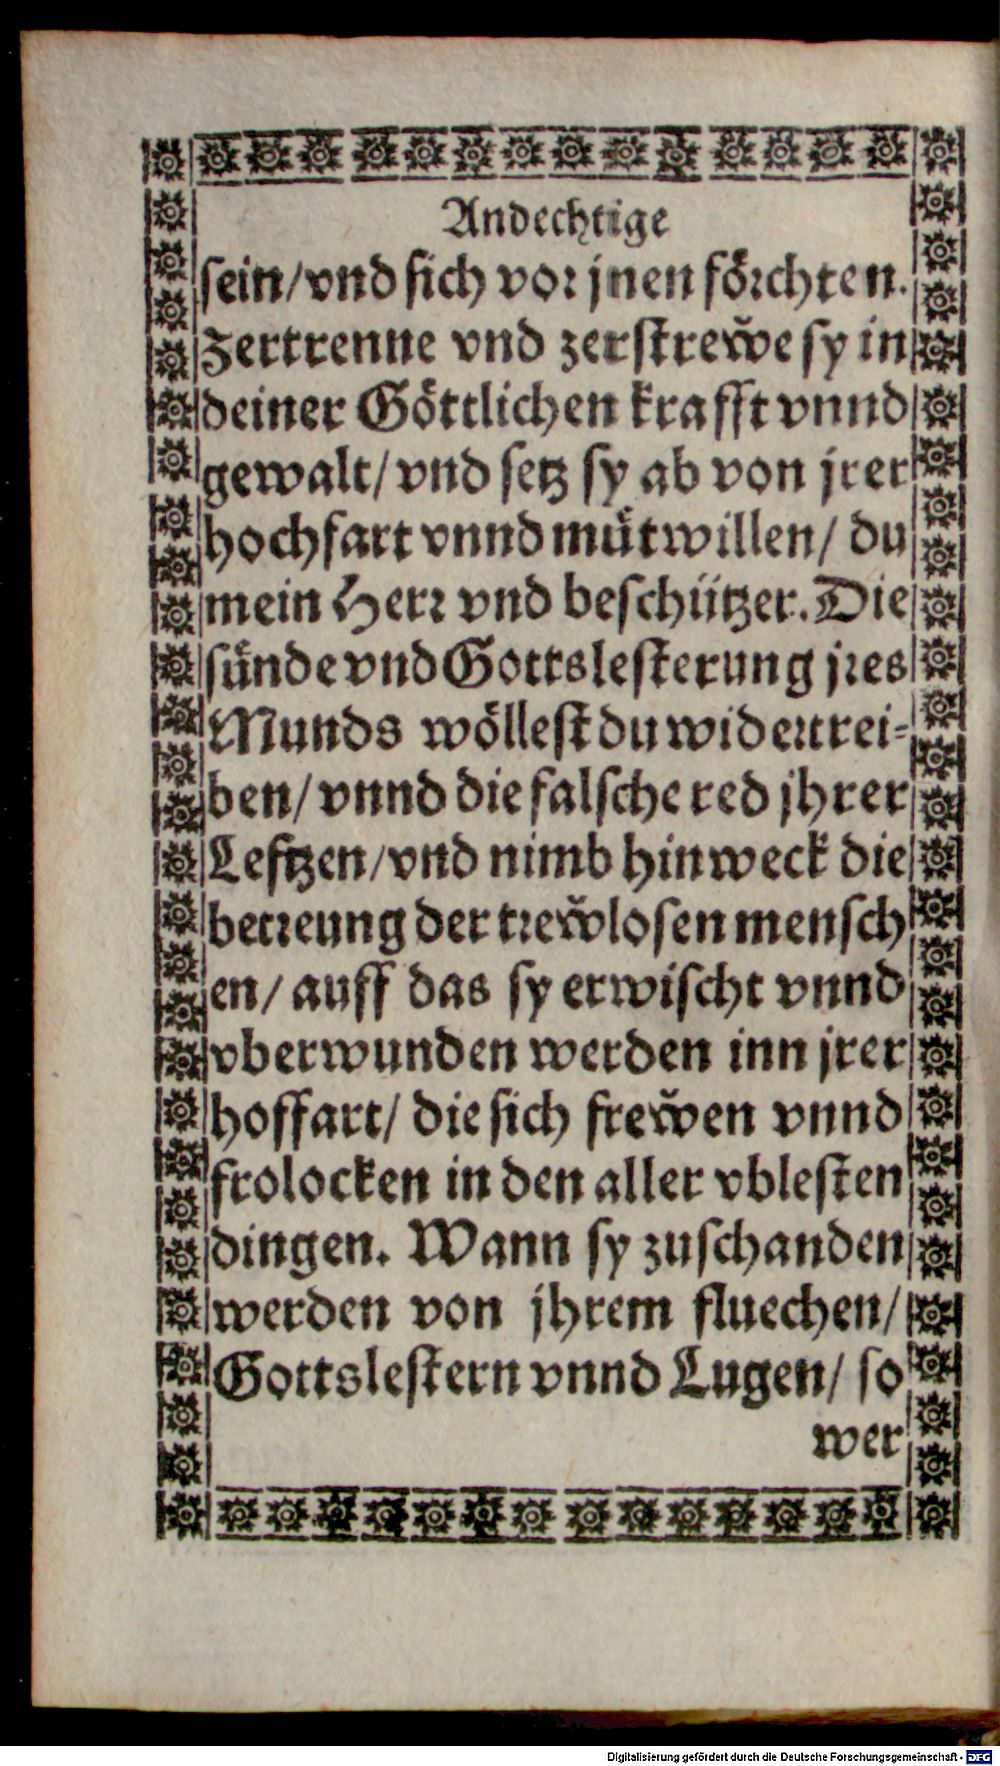 Andechtige
sein/vnd sich vor jnen förchten.
Zertrenne vnd zerstrew̌e sy in
deiner Göttlichen krafft vnnd
gewalt/vnd setz sy ab von jrer
hochfart vnnd mütwillen/ du
mein Herr vnd beschützer. Die
sünde vnd Gottslesterung jres
Munds wöllest du widertrei⸗
ben/ vnnd die falsche red jhrer
Lefftzen/vnd nimb hinweck die
betreung der trew̌losen mensch
en/ auff das sy erwischt vnnd
vberwunden werden inn jrer
hoffart/ die sich frew̌en vnnd
frolocken in den aller vblesten
dingen. Wann sy zuschanden
werden von jhrem fluechen/
Gottslestern vnnd Lugen/ so
wer
Digitalisierung gefördert durch die Deutsche Forschungsgemeinschaft - DFG